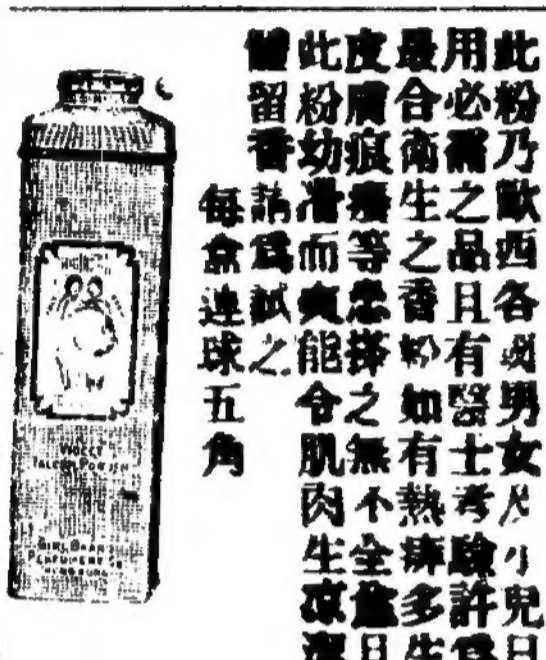 此粉乃歐西各國男女及小兒日
用必需之品且有醫士考驗許為
最合衛生之香粉如有熱痱多生
皮膚痕癢等患搽之無不全愈且
此粉幼滑而爽能令肌肉生涼滿
體留香請為試之
每盒連球五角
VIOLET
TALCUM POWDER
GIRL BRAND
PERFUMERY CO
HONGKONG